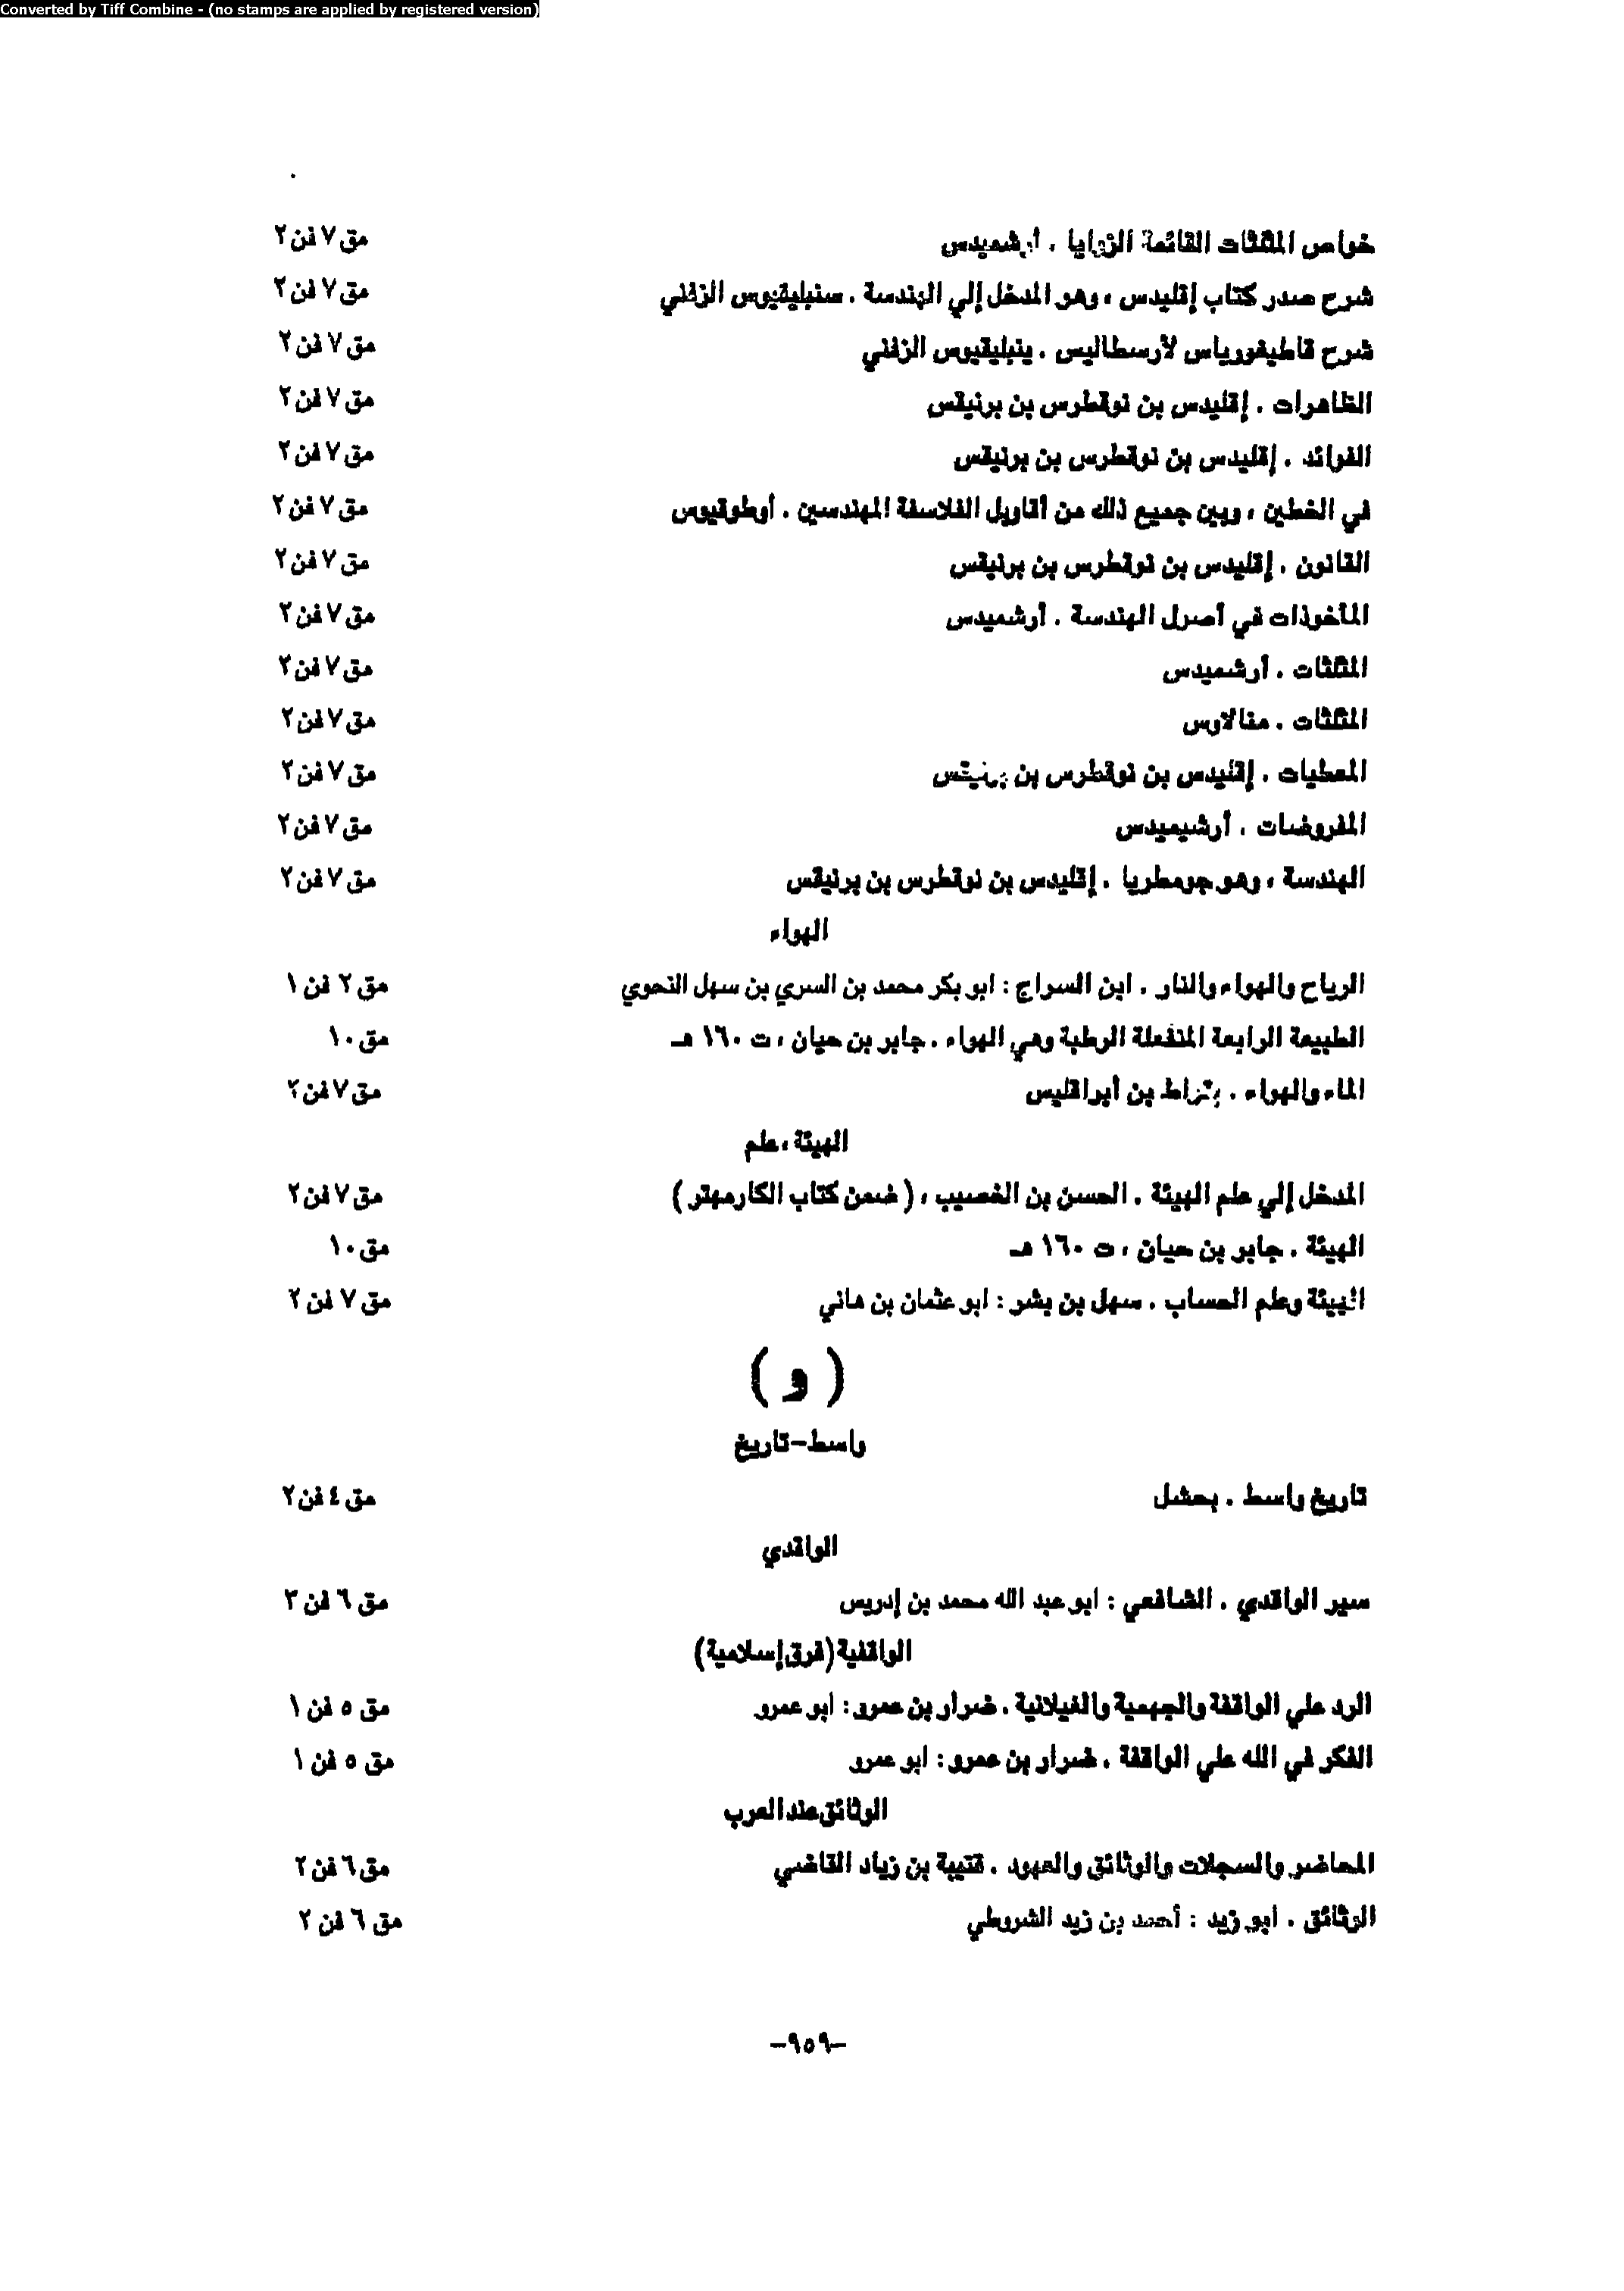 Converted by Tiff Combine - (no stamps are applied by registered version)
خواص المثلثات القائمة الزوايا . أرشميدس مق ٧ فن ٢
شرح صدر كتاب إقليدس ، وهو المدخل إلي الهندسة . سنبليقيوس الزفني مق ٧ فن ٢
شرح قاطيغورياس لأرسطاليس . ينبليقيوس الزفني مق ٧ فن ٢
الظاهرات . إقليدس بن نوقطرس بن برنيقس مق ٧ فن ٢
الفوائد . إقليدس بن نوقطرس بن برنيقس مق ٧ فن ٢
في الخطين ، وبين جميع ذلك من أقاويل الفلاسفة المهندسين . أوطوقيوس مق ٧ فن ٢
القانون . إقليدس بن نوقطرس بن برنيقس مق ٧ فن ٢
المأخوذات في أصول الهندسة . أرشميدس مق ٧ فن ٢
المثلثات . أرشميدس مق ٧ فن ٢
المثلثات . منالاوس مق ٧ فن ٢
المعطيات . إقليدس بن نوقطرس بن برنيقس مق ٧ فن ٢
المفروضات . أرشيميدس مق ٧ فن ٢
الهندسة ، وهو جومطريا . إقليدس بن نوقطرس بن برنيقس مق ٧ فن ٢
الهواء
الرياح والهواء والنار . ابن السراج : ابو بكر محمد بن السري بن سهل النحوي مق ٢ فن ١
الطبيعة الرابعة المنفعلة الرطبة وهي الهواء . جابر بن حيان ، ت ١٦٠ هـ مق ١٠
الماء والهواء . بقراط بن أبراقليس مق ٧ فن ٢
الهيئة ، علم
المدخل إلي علم الهيئة . الحسن بن الخصيب ، ( ضمن كتاب الكارمهتر ) مق ٧ فن ٢
الهيئة . جابر بن حيان ، ت ١٦٠ هـ مق ١٠
الهيئة وعلم الحساب . سهل بن بشر : ابو عثمان بن هاني مق ٧ فن ٢
( و )
واسط-تاريخ
تاريخ واسط . بحشل مق ٤ فن ٢
الواقدي
سير الواقدي . الشافعي : ابو عبد الله محمد بن إدريس مق ٦ فن ٣
الواقفية (فرق إسلامية)
الرد علي الواقفة والجهمية والغيلانية . ضرار بن عمرو : ابو عمرو مق ٥ فن ١
الفكر في الله علي الواقفة . ضرار بن عمرو : ابو عمرو مق ٥ فن ١
الوثائق عند العرب
المحاضر والسجلات والوثائق والعهود . قتيبة بن زياد القاضي مق ٦ فن ٢
الوثائق . أبو زيد : أحمد بن زيد الشروطي مق ٦ فن ٢
-٩٥٩-